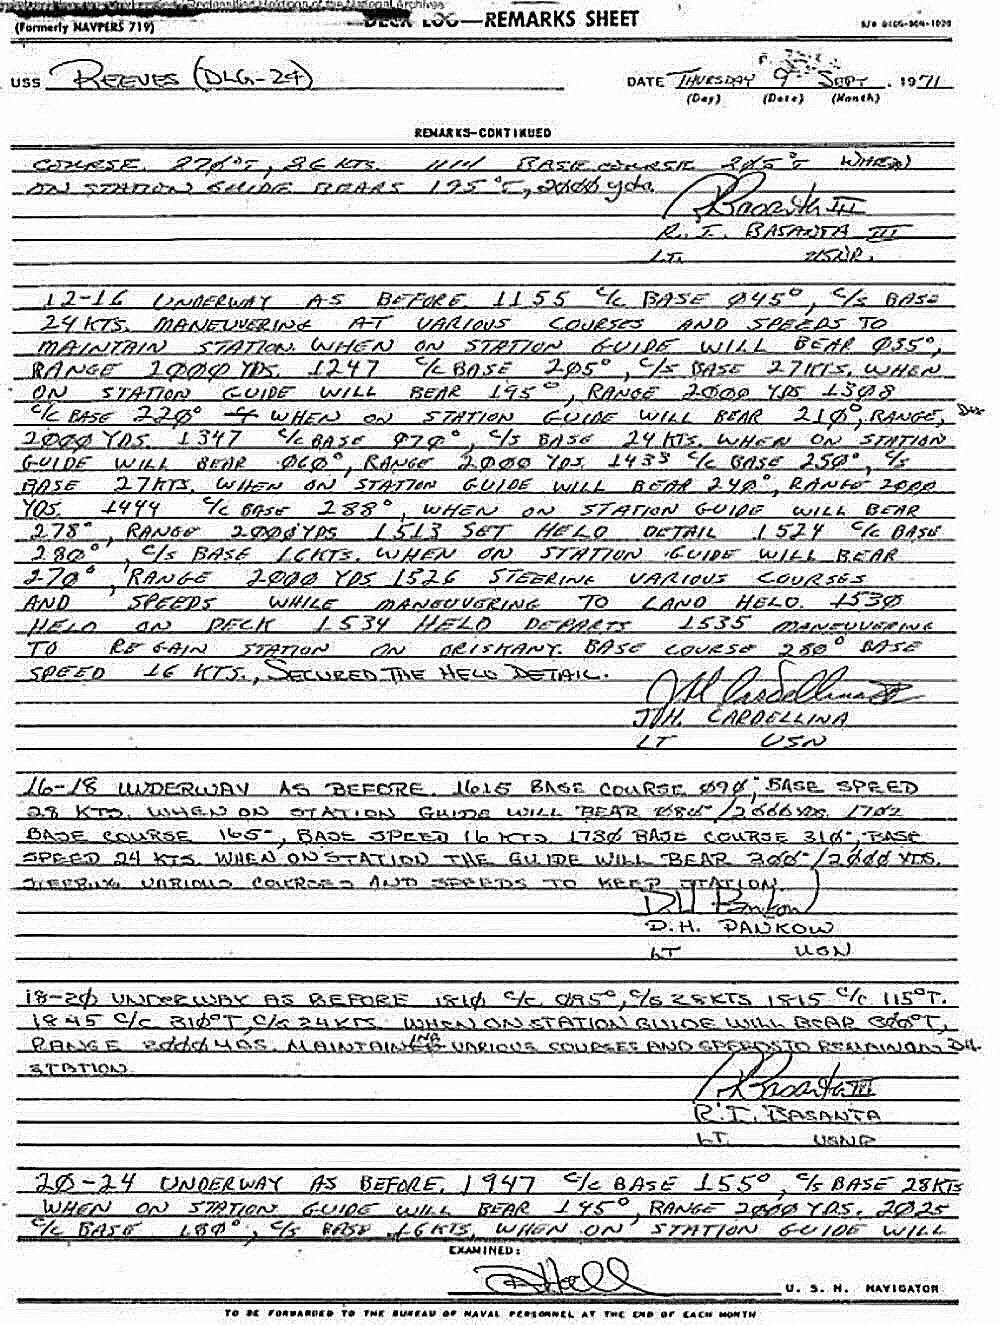 Declassified Holdings of the National Archives
DECK LOG—REMARKS SHEET
(Formerly NAVPERS 719)
S/N 0105-804-1020
USS REEVES (DLG-24)
DATE THURSDAY 9 SEPT, 1971
(Day) (Date) (Month)
REMARKS-CONTINUED
COURSE 270°T, 26 KTS. 1111 BASE COURSE 205°T WHEN
ON STATION GUIDE BEARS 195°T, 2000 yds.
R. I. BASANTA III
LT. USNR.
12-16 UNDERWAY AS BEFORE 1155 C/C BASE Ø45°, C/S BASE
24 KTS. MANEUVERING AT VARIOUS COURSES AND SPEEDS TO
MAINTAIN STATION. WHEN ON STATION GUIDE WILL BEAR Ø35°,
RANGE 2ØØØ YDS. 1247 C/C BASE 205°, C/S BASE 27KTS. WHEN
ON STATION GUIDE WILL BEAR 195°, RANGE 2000 YDS 1308
C/C BASE 22Ø° WHEN ON STATION GUIDE WILL BEAR 21Ø°, RANGE,
2ØØØ YDS. 1347 C/C BASE Ø7Ø°, C/S BASE 24 KTS. WHEN ON STATION
GUIDE WILL BEAR Ø6Ø°, RANGE 2ØØØ YDS. 1433 C/C BASE 25Ø°, C/S
BASE 27KTS. WHEN ON STATION GUIDE WILL BEAR 24Ø°, RANGE 2000
YDS. 1444 C/C BASE 288°, WHEN ON STATION GUIDE WILL BEAR
278°, RANGE 2ØØØ YDS 1513 SET HELO DETAIL 1524 C/C BASE
28Ø°, C/S BASE 16KTS. WHEN ON STATION GUIDE WILL BEAR
27Ø°, RANGE 2ØØØ YDS 1526 STEERING VARIOUS COURSES
AND SPEEDS WHILE MANEUVERING TO LAND HELO. 153Ø
HELO ON DECK 1534 HELO DEPARTS 1535 MANEUVERING
TO REGAIN STATION ON ORISKANY. BASE COURSE 280° BASE
SPEED 16 KTS., SECURED THE HELO DETAIL.
J. H. CARDELLINA
LT USN
16-18 UNDERWAY AS BEFORE. 1615 BASE COURSE Ø9Ø°, BASE SPEED
28 KTS. WHEN ON STATION GUIDE WILL BEAR Ø80°/2000 YDS. 1702
BASE COURSE 165°, BASE SPEED 16 KTS. 173Ø BASE COURSE 31Ø°, BASE
SPEED 24 KTS. WHEN ON STATION THE GUIDE WILL BEAR 300°/2000 YDS.
STEERING VARIOUS COURSES AND SPEEDS TO KEEP STATION.
D.H. PANKOW
LT USN
18-2Ø UNDERWAY AS BEFORE 181Ø C/C Ø85°, C/S 28KTS 1815 C/C 115°T.
1845 C/C 31Ø°T, C/S 24KTS. WHEN ON STATION GUIDE WILL BEAR 300°T,
RANGE 2000 YDS. MAINTAINING VARIOUS COURSES AND SPEEDS TO REMAIN ON
STATION.
R. I. BASANTA
LT. USNR
2Ø-24 UNDERWAY AS BEFORE. 1947 C/C BASE 155°, C/S BASE 28KTS
WHEN ON STATION GUIDE WILL BEAR 145°, RANGE 2000 YDS. 2025
C/C BASE 180°, C/S BASE 16 KTS, WHEN ON STATION GUIDE WILL
EXAMINED:
U. S. N. NAVIGATOR
TO BE FORWARDED TO THE BUREAU OF NAVAL PERSONNEL AT THE END OF EACH MONTH